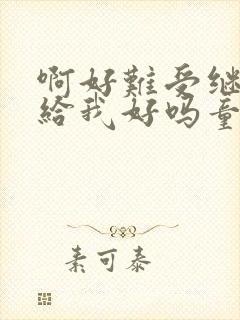 啊好難受继
給我好吗童
素可泰